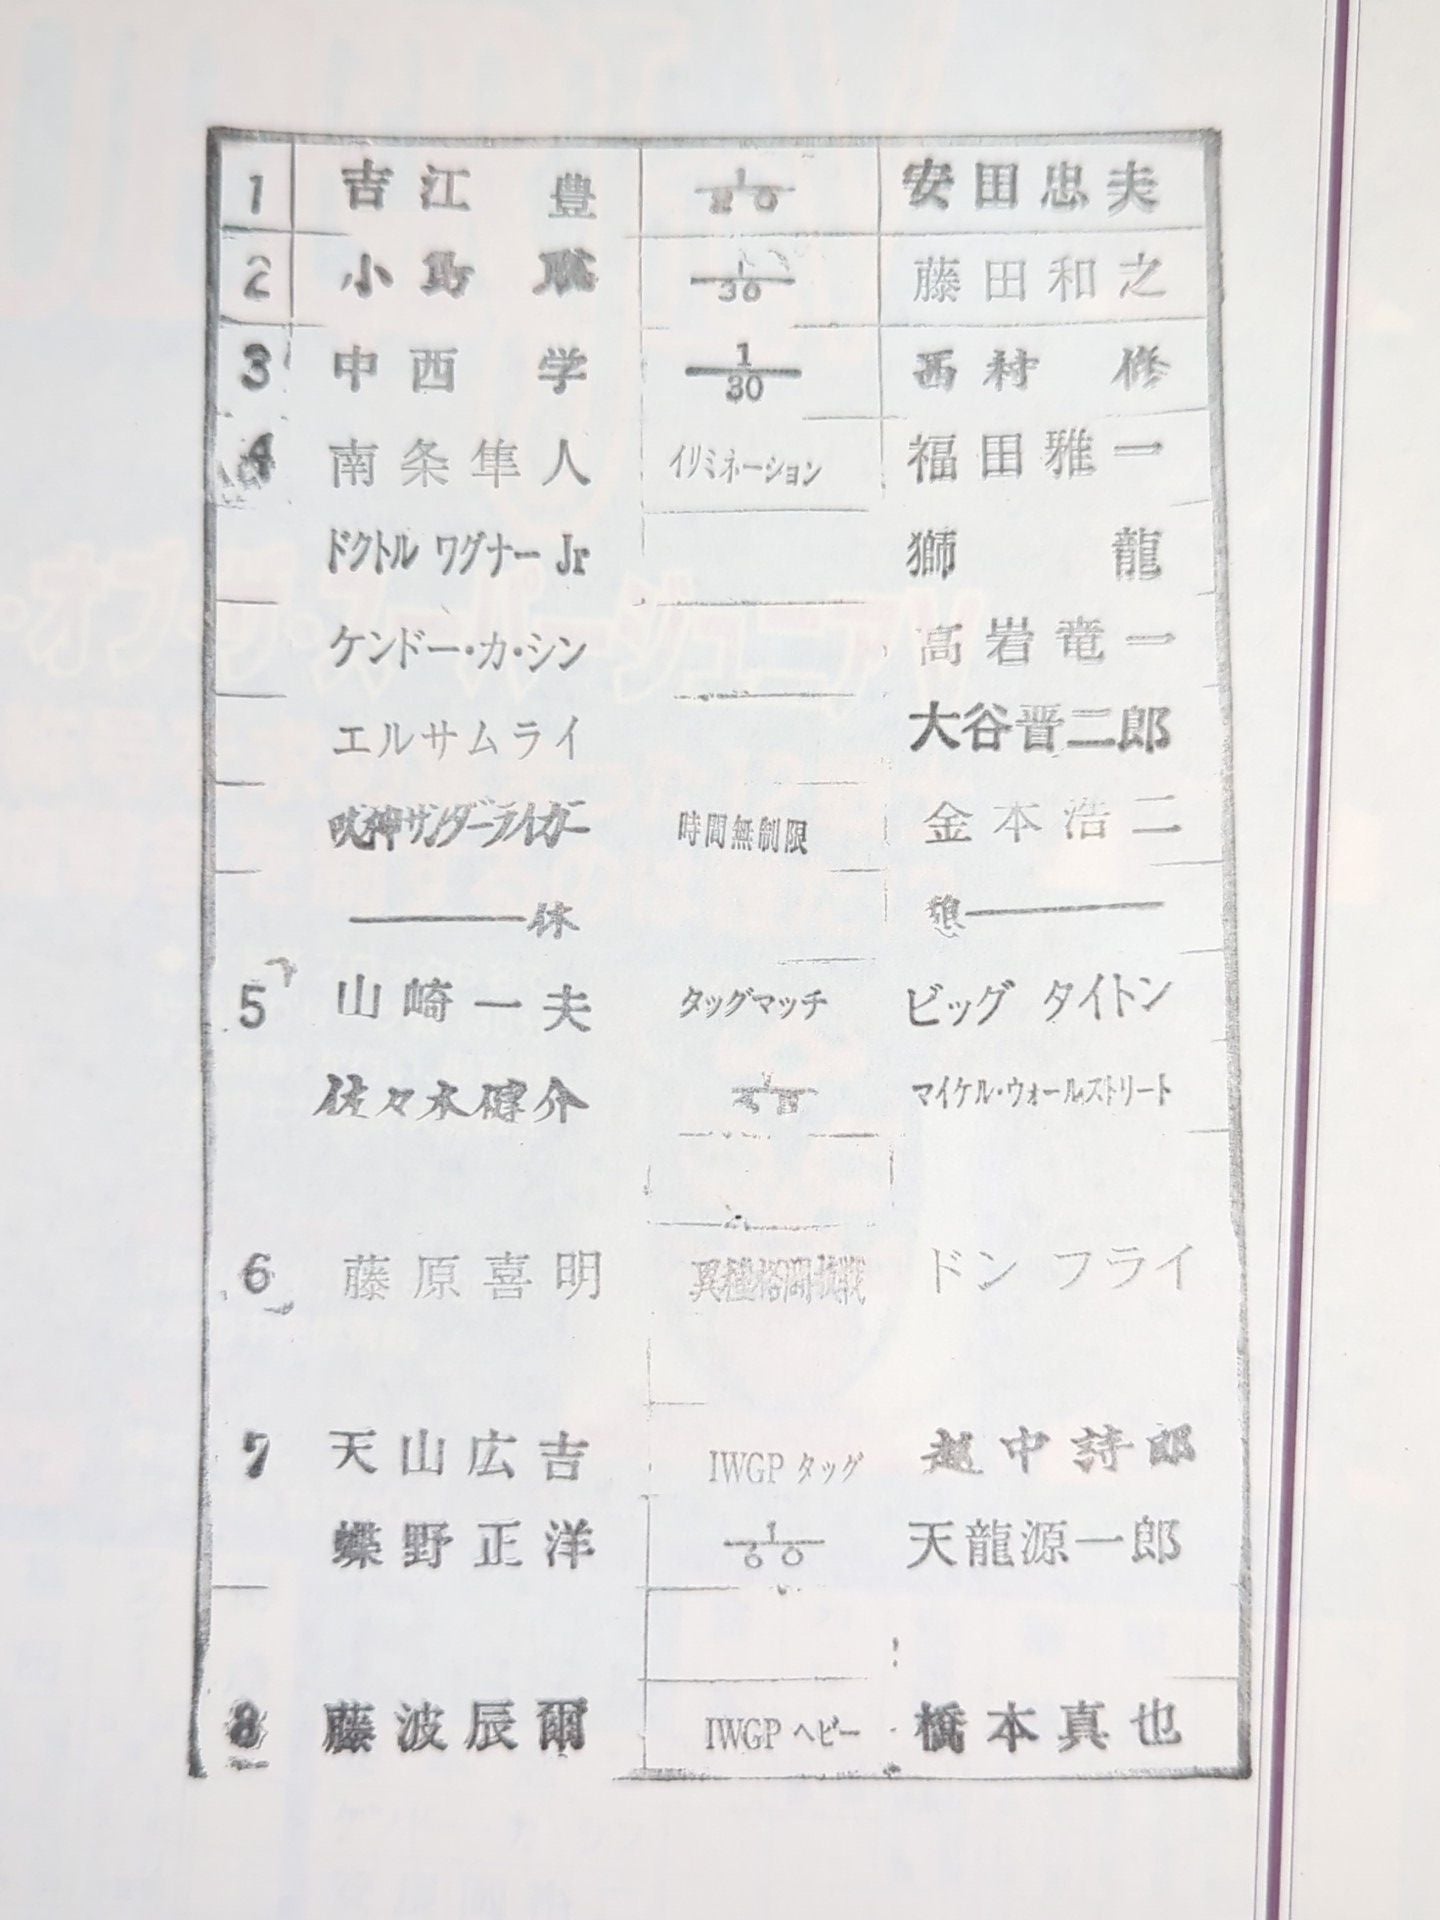 1 吉江 豊 1/20 安田忠夫
2 小島 聡 1/30 藤田和之
3 中西 学 1/30 西村 修
4 南条隼人 イリミネーション 福田雅一
ドクトル ワグナー Jr 獅龍
ケンドー・カ・シン 高岩竜一
エルサムライ 大谷晋二郎
獣神サンダーライガー 時間無制限 金本浩二
休 憩
5 山崎一夫 タッグマッチ ビッグ タイトン
佐々木健介 マイケル・ウォールストリート
6 藤原喜明 異種格闘技戦 ドン フライ
7 天山広吉 IWGP タッグ 越中詩郎
蝶野正洋 1/60 天龍源一郎
8 藤波辰爾 IWGP ヘビー 橋本真也